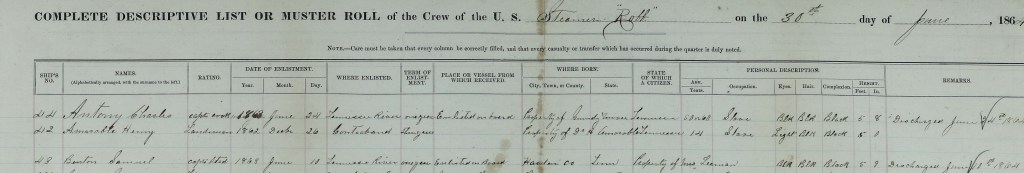 COMPLETE DESCRIPTIVE LIST OR MUSTER ROLL of the Crew of the U. S. Steamer "Robb" on the 30th day of June, 1864
NOTE.—Care must be taken that every column be correctly filled, and that every casualty or transfer which has occurred during the quarter is duly noted.
SHIP'S No. NAMES. (Alphabetically arranged, with the surname to the left.) RATING. DATE OF ENLISTMENT. Year. Month. Day. WHERE ENLISTED. TERM OF ENLISTMENT. PLACE OR VESSEL FROM WHICH RECEIVED. WHERE BORN. City, Town, or County. State. STATE OF WHICH A CITIZEN. PERSONAL DESCRIPTION. Age. Years. Occupation. Eyes. Hair. Complexion. Height. Feet. In. REMARKS.
44 Antony Charles 1863 June 24 Tennessee River Enlisted on board Property of Tennessee Slave Blk Blk Black 5 8 Discharged June
42 Henry Landsman 1862 26 Contraband Property of Dr Tennessee 14 Slave Light Blk Black 5 0
48 Benton Samuel 1863 June 10 Tennessee River Enlisted on Board Co Tenn Property of Blk Blk Black 5 Discharged June 1864